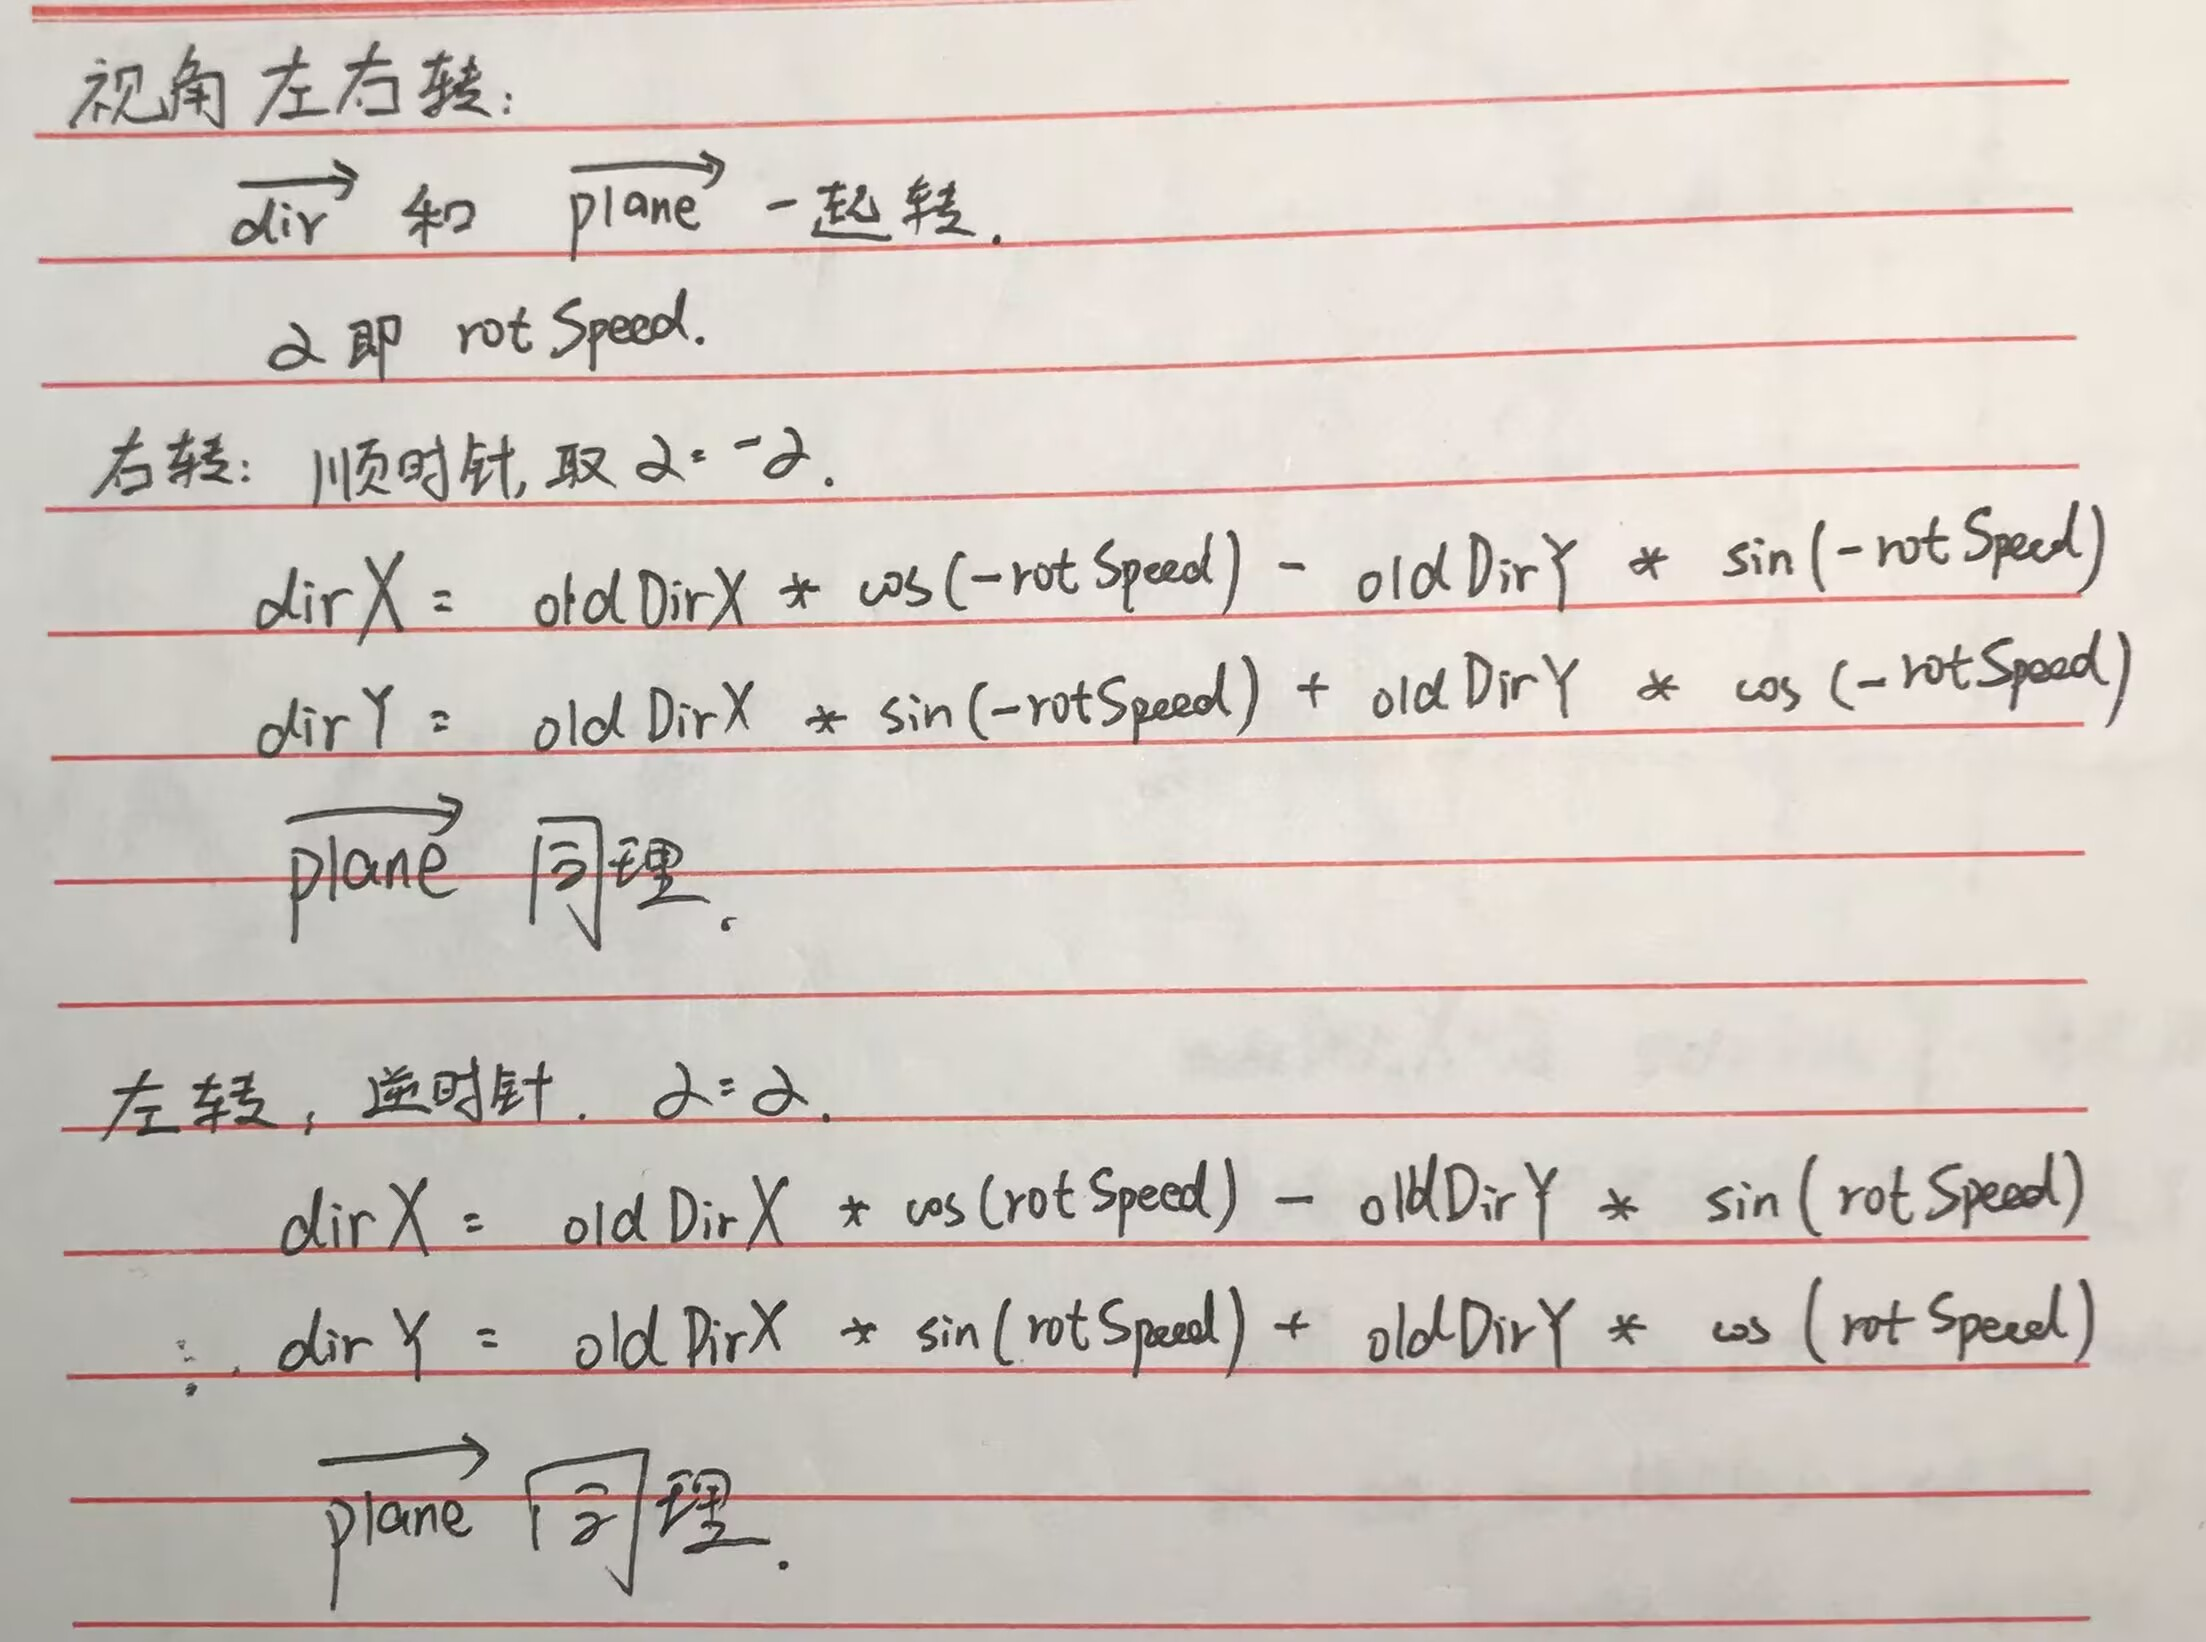 视角左右转:
dir 和 plane 一起转.
α即 rotSpeed.
右转: 顺时针, 取 α = -α.
dirX = oldDirX * cos(-rotSpeed) - oldDirY * sin(-rotSpeed)
dirY = oldDirX * sin(-rotSpeed) + oldDirY * cos(-rotSpeed)
plane 同理.
左转, 逆时针. α = α.
dirX = oldDirX * cos(rotSpeed) - oldDirY * sin(rotSpeed)
dirY = oldDirX * sin(rotSpeed) + oldDirY * cos(rotSpeed)
plane 同理.